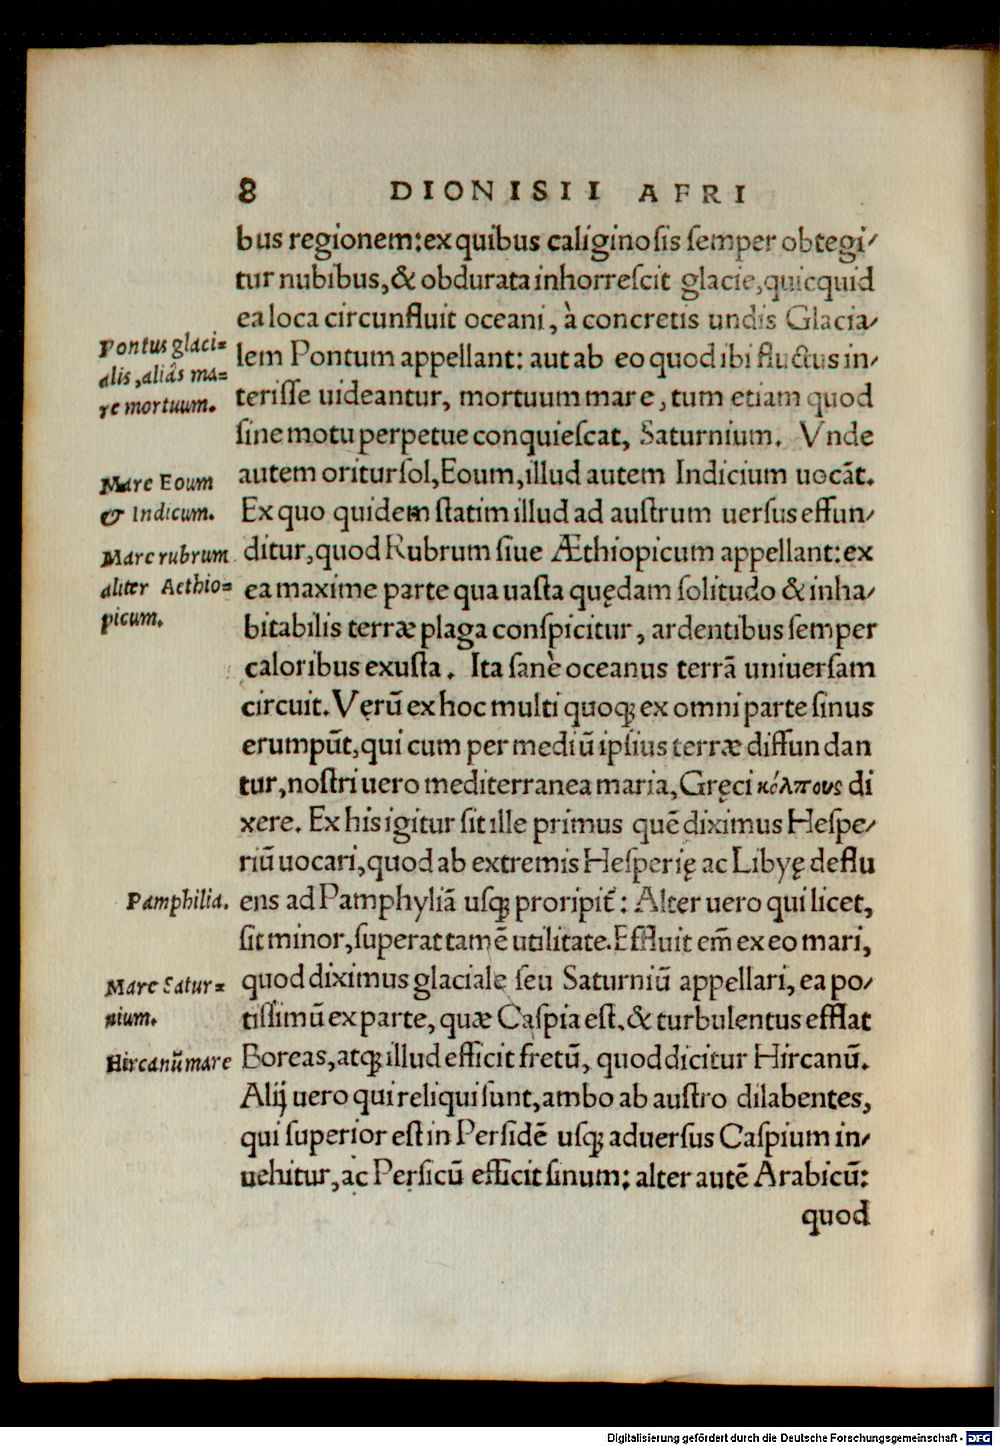 8 DIONISII AFRI
bus regionem: ex quibus caliginosis semper obtegi/
tur nubibus, & obdurata inhorrescit glacie, quicquid
ea loca circunfluit oceani, à concretis undis Glacia/
Pontus glaci=
alis, aliâs ma=
re mortuum.
lem Pontum appellant: aut ab eo quod ibi fluctus in/
terisse uideantur, mortuum mare, tum etiam quod
sine motu perpetue conquiescat, Saturnium. Vnde
Mare Eoum
& Indicum.
autem oritur sol, Eoum, illud autem Indicium uocāt.
Ex quo quidem statim illud ad austrum uersus effun/
Mare rubrum
aliter Aethio=
picum.
ditur, quod Rubrum siue Æthiopicum appellant: ex
ea maxime parte qua uasta quędam solitudo & inha/
bitabilis terræ plaga conspicitur, ardentibus semper
caloribus exusta. Ita sanè oceanus terrā uniuersam
circuit. Verū ex hoc multi quoq; ex omni parte sinus
erumpūt, qui cum per mediū ipsius terræ diffundan
tur, nostri uero mediterranea maria, Gręci κόλπους di
xere. Ex his igitur sit ille primus quē diximus Hespe/
riū uocari, quod ab extremis Hesperię ac Libyę deflu
Pamphilia.
ens ad Pamphyliā usq; proripit̃: Alter uero qui licet,
sit minor, superat tamē utilitate. Effluit em̃ ex eo mari,
Mare Satur=
nium.
quod diximus glaciale seu Saturniū appellari, ea po/
tissimū ex parte, quæ Caspia est, & turbulentus efflat
Hircanū mare
Boreas, atq; illud efficit fretū, quod dicitur Hircanū.
Alij uero qui reliqui sunt, ambo ab austro dilabentes,
qui superior est in Persidē usq; aduersus Caspium in/
uehitur, ac Persicū efficit sinum: alter autē Arabicū:
quod
Digitalisierung gefördert durch die Deutsche Forschungsgemeinschaft - DFG